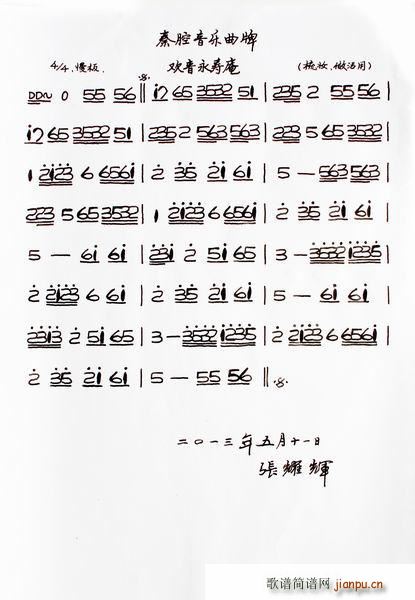 秦腔音乐曲牌
4/4 慢板 欢音永寿庵 (梳妆、做活用)
DD~ 0 55 56 ‖ i7 65 3532 51 | 235 2 55 56 |
i7 65 3532 51 | 235 2 563 563 | 223 5 65 3532 |
1 2123 6 6561 | 2 35 21 61 | 5 — 563 563 |
223 5 65 3532 | 1 2123 6 6561 | 2 35 21 61 |
5 — 61 61 | 231 2 51 65 | 3 — 3532 1235 |
2 2123 6 61 | 2 35 21 61 | 5 — 61 61 |
2313 2 51 65 | 3 — 3532 1235 | 2 2123 6 6561 |
2 35 21 61 | 5 — 55 56 ‖
二〇一三年五月十一日
張耀輝
歌谱简谱网
jianpu.cn